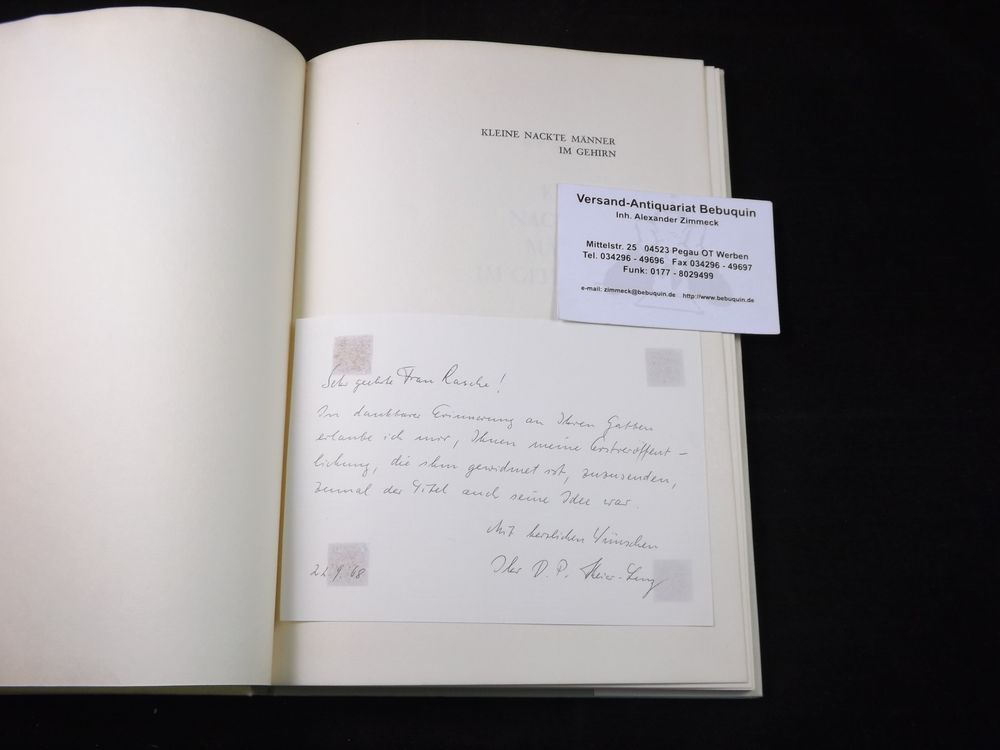 KLEINE NACKTE MÄNNER
IM GEHIRN
Versand-Antiquariat Bebuquin
Inh. Alexander Zimmeck
Mittelstr. 25 04523 Pegau OT Werben
Tel. 034296 - 49696 Fax 034296 - 49697
Funk: 0177 - 8029499
e-mail: zimmeck@bebuquin.de http://www.bebuquin.de
Sehr geehrte Frau Rasche!
In dankbarer Erinnerung an Ihren Gatten
erlaube ich mir, Ihnen meine Erstveröffent-
lichung, die ihm gewidmet ist, zuzusenden,
zumal der Titel auch seine Idee war.
Mit herzlichen Wünschen
Ihr D. P. Meier-Lenz
22.9.68